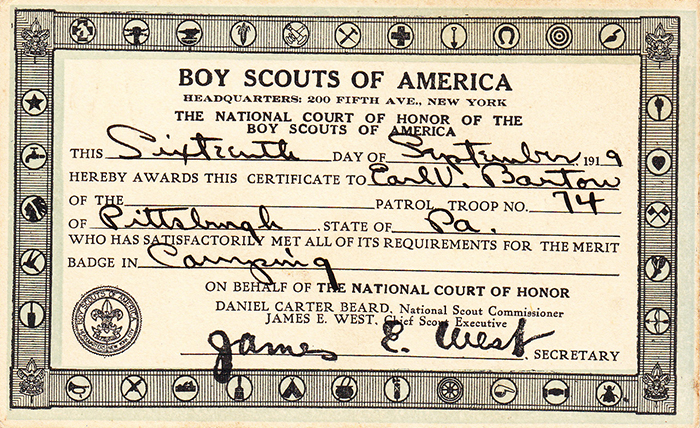 BOY SCOUTS OF AMERICA
HEADQUARTERS: 200 FIFTH AVE., NEW YORK
THE NATIONAL COURT OF HONOR OF THE
BOY SCOUTS OF AMERICA
THIS Sixteenth DAY OF September 1919
HEREBY AWARDS THIS CERTIFICATE TO Earl V. Barton
OF THE PATROL, TROOP NO. 74
OF Pittsburgh, STATE OF Pa.
WHO HAS SATISFACTORILY MET ALL OF ITS REQUIREMENTS FOR THE MERIT
BADGE IN Camping
ON BEHALF OF THE NATIONAL COURT OF HONOR
DANIEL CARTER BEARD, National Scout Commissioner
JAMES E. WEST, Chief Scout Executive
James E. West, SECRETARY
BOY SCOUTS OF AMERICA